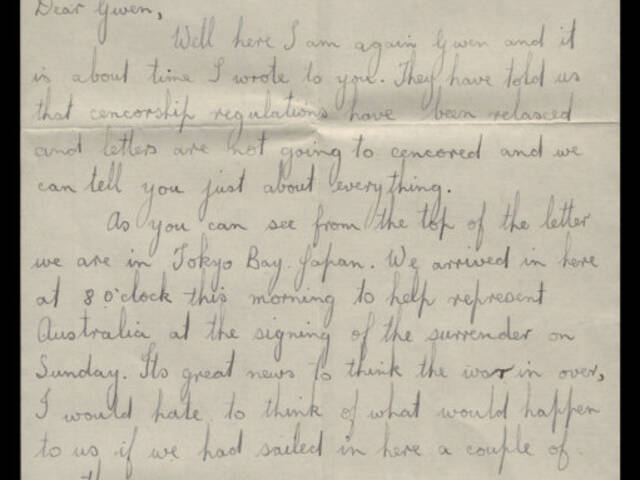 Dear Gwen,
Well here I am again Gwen and it
is about time I wrote to you. They have told us
that cencorship regulations have been relasced
and letters are not going to cencored and we
can tell you just about everything.
As you can see from the top of the letter
we are in Tokyo Bay. Japan. We arrived in here
at 8 o'clock this morning to help represent
Australia at the signing of the surrender on
Sunday. Its great news to think the war in over,
I would hate to think of what would happen
to us if we had sailed in here a couple of